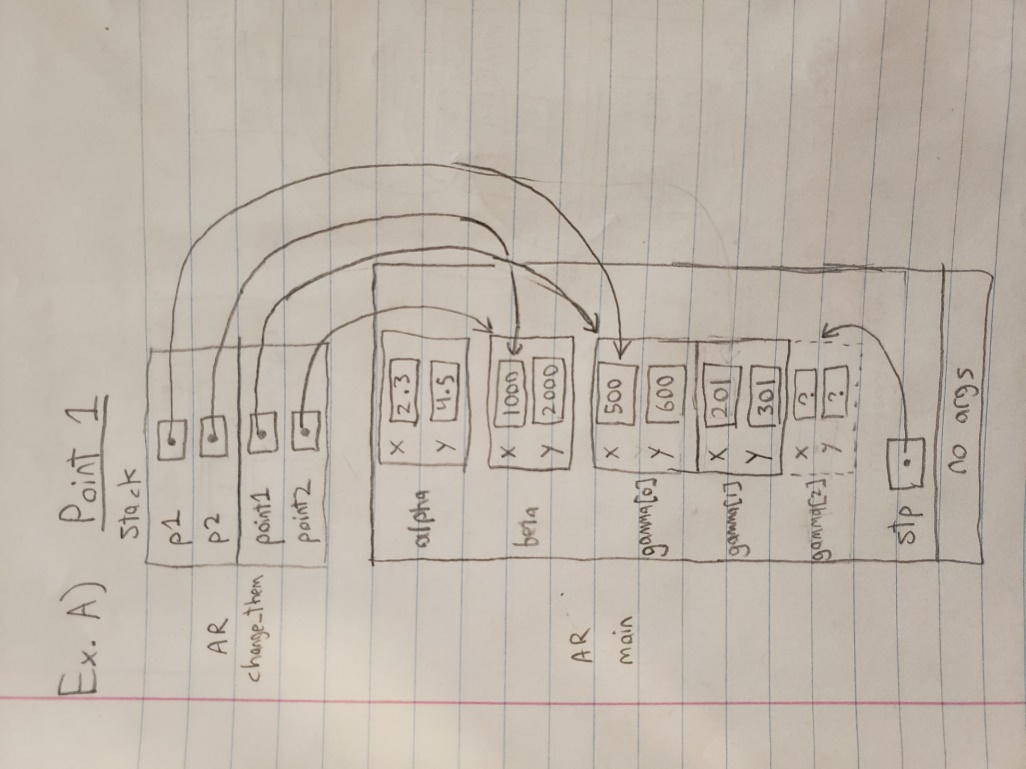 Ex. A) Point 1
Stack
AR
change_them
p1
p2
point1
point2
AR
main
alpha
X 2.3
Y 4.5
beta
X 1000
Y 2000
gamma[0]
X 500
Y 600
gamma[1]
X 201
Y 301
gamma[2]
X ?
Y ?
stp
no args